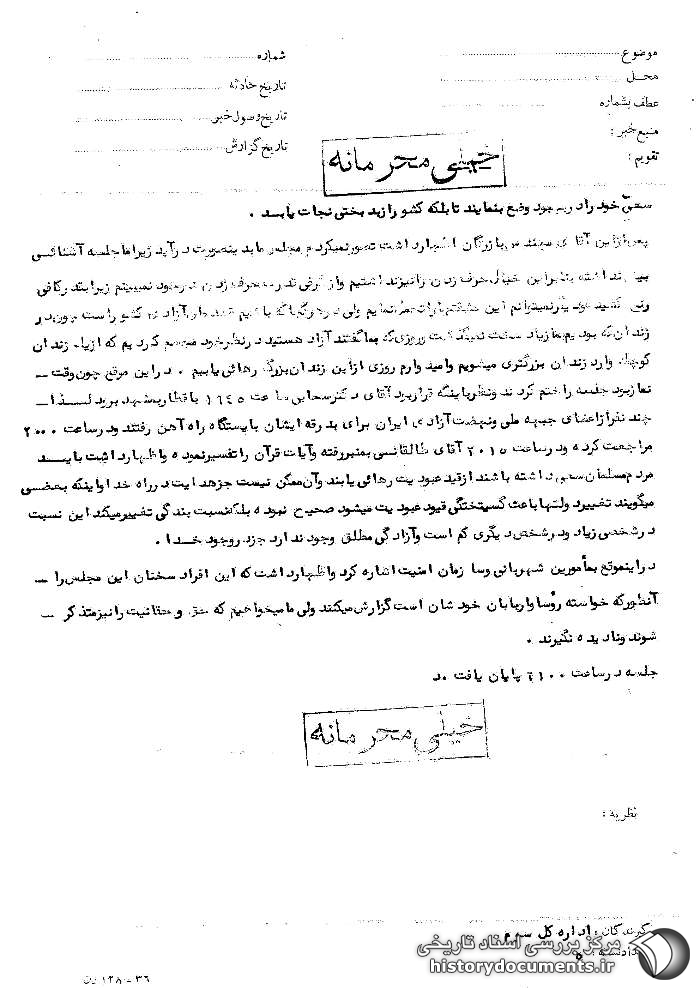 موضوع
شماره
محل
تاریخ حادثه
عطف بشماره
تاریخ وصول خبر
منبع خبر :
تاریخ گزارش
تقویم :
خیلی محرمانه
سعی خود را در بهبود وضع بنمایند تا بلکه کشور از بدبختی نجات یابد .
پس از این آقای مهندس بازرگان اظهار داشت تصور نمیکردم مجلس ما بدینصورت درآید زیرا ما جلسه آشنائی
بیش نداشته بنابراین خیال حرف زدن را نیز نداشتیم و از طرفی قدرت حرف زدن در خود نمیبینم زیرا بقدر کافی
رنج کشیده
زندان که بودیم بما زیاد سخت نمیگذشت و روزی که بما گفتند آزاد هستید در نظر خود مجسم کردیم که از یک زندان
کوچک وارد زندان بزرگتری میشویم و امیدوارم روزی از این زندان بزرگ رهائی یابیم . در این موقع چون وقت –
نماز بود جلسه را ختم کردند و نظر باینکه قرار بود آقای دکتر سحابی ساعت ۱۶۴۵ با قطار بمشهد برود لذا –
چند نفر از اعضای جبهه ملی و نهضت آزادی ایران برای بدرقه ایشان بایستگاه راه آهن رفتند و در ساعت ۲۰۰۰
مراجعت کرده و در ساعت ۲۰۱۵ آقای طالقانی بمنبر رفته و آیات قرآن را تفسیر نموده و اظهار داشت بایستد
مردم مسلمان سعی داشته باشند از قید عبودیت رهائی یابند و آن ممکن نیست جز هدایت در راه خدا و اینکه بعضی
میگویند تغییر دولتها باعث گسیختگی قیود عبودیت میشود صحیح نبوده بلکه نسبت بندگی تغییر میکند این نسبت
در شخصی زیاد و در شخص دیگری کم است و آزادگی مطلق وجود ندارد جز در وجود خدا .
در اینموقع بمأمورین شهربانی و سازمان امنیت اشاره کرد و اظهار داشت که این افراد سخنان این مجلس را –
آنطور که خواسته رؤسا و اربابان خودشان است گزارش میکنند ولی ما میخواهیم که حق و حقانیت را نیز متذکر –
شوند و نادیده نگیرند .
جلسه در ساعت ۲۱۰۰ پایان یافت .د
خیلی محرمانه
نظریه :
گیرندگان : اداره کل سوم
مرکز بررسی اسناد تاریخی
historydocuments.ir
۳۶ – ۱۲۸۰